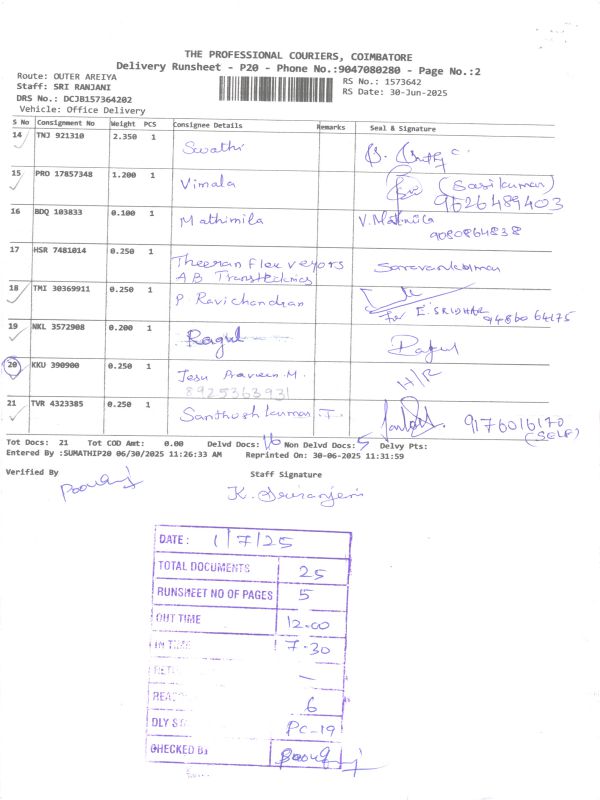 THE PROFESSIONAL COURIERS, COIMBATORE
Delivery Runsheet - P20 - Phone No.:9047080280 - Page No.:2
Route: OUTER AREIYA
RS No.: 1573642
Staff: SRI RANJANI
RS Date: 30-Jun-2025
DRS No.: DCJB157364202
Vehicle: Office Delivery
S No Consignment No Weight PCS Consignee Details Remarks Seal & Signature
14 TNJ 921310 2.350 1 Swathi
15 PRO 17857348 1.200 1 Vimala (Sasikumar) 9526489403
16 BDQ 103833 0.100 1 Mathimila V. Mathimila
9080864838
17 HSR 7481014 0.250 1 Theeran Flex veyors Saravanakumar
A B Transtechnics
18 TMI 30369911 0.250 1 P. Ravichandran For E. SRIDHAR 9486064175
19 NKL 3572908 0.200 1 Ragul Ragul
20 KKU 390900 0.250 1 Jesu Praveen. M. H/R
8925363931
21 TVR 4323385 0.250 1 Santhosh kumar. T. 9176016170
(SELF)
Tot Docs: 21 Tot COD Amt: 0.00 Delvd Docs: 16 Non Delvd Docs: 5 Delvy Pts:
Entered By :SUMATHIP20 06/30/2025 11:26:33 AM Reprinted On: 30-06-2025 11:31:59
Verified By Staff Signature
K. Sriranjani
DATE : 1/7/25
TOTAL DOCUMENTS 25
RUNSHEET NO OF PAGES 5
OUT TIME 12.00
IN TIME 17.30
RETU –
REAS 6
DLY S PC-19
CHECKED BY